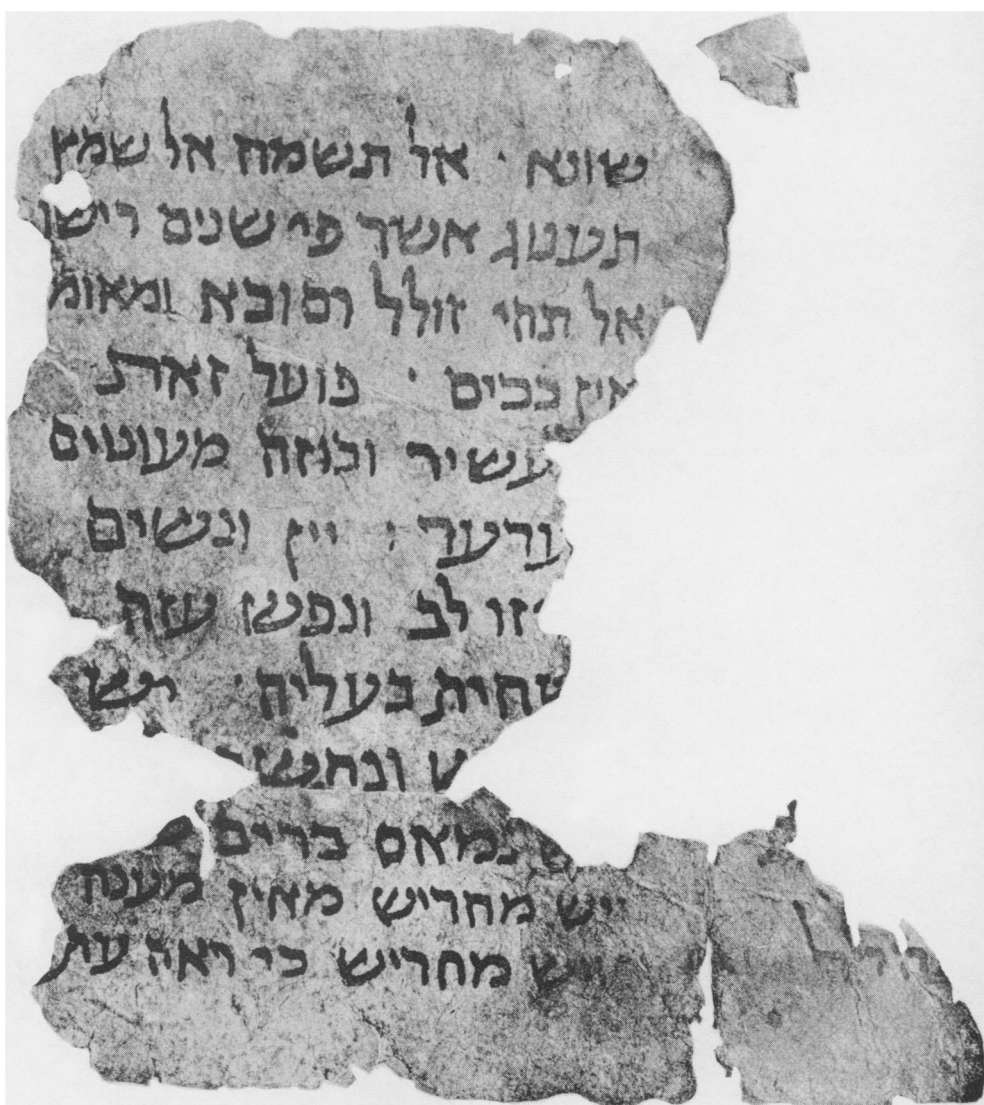 שונא · אל תשמח אל שמץ
תענוג אשר פי שנים רישו
אל תהי זולל וסובא ומאומ
אין בכיס · פועל זאת
עשיר ובוזה מעוטים
ערער · יין ונשים
יזו לב ונפש עזה
שחית בעליה · יש
ש ונחש
נמאס ברי
ויש מחריש מאין מענה
ויש מחריש כי ראה עת